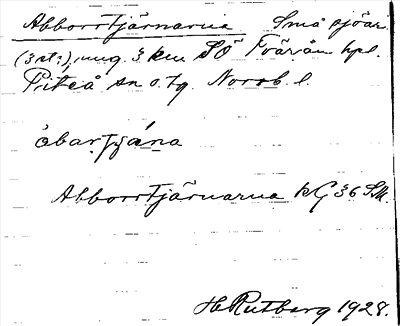 Abborrtjärnarna Små sjöar
(3 st.), ung. 3 km SÖ Tvärån hpl.
Piteå sn o. tg. Norrb. l.
åbartjä́na
Abborrtjärnarna kG 36 S.M.
H Rutberg 1928.